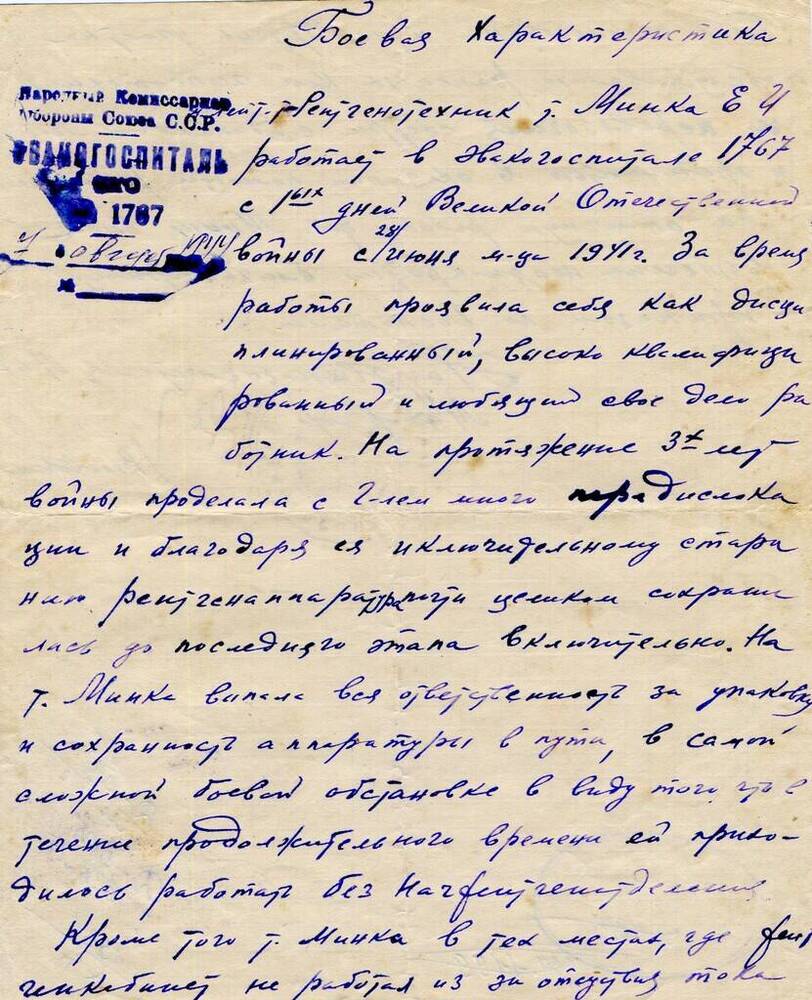 Боевая характеристика
Народный Комиссариат
Обороны Союза С.С.Р.
ЭВАКОГОСПИТАЛЬ
1767
августа 1944
№
Рентгенотехник т. Минка Е И
работает в эвакогоспитале 1767
с 1ых дней Великой Отечественной
войны с 28/ июня м-ца 1941г. За время
работы проявила себя как дисци
плинированный, высоко квалифици
рованный и любящий свое дело ра
ботник. На протяжение 3х лет
войны проделала с Г-лем много передислока
ции и благодаря ея иключительному стара
нию рентгенаппаратура почти целиком сохрани
лась до последняго этапа включительно. На
т. Минка випала вся ответственность за упаковку
и сохранность аппаратуры в пути, в самой
сложной боевой обстановке в виду того, что в
течение продолжительного времени ей прихо-
дилось работать без Начрентгенотделения
Кроме того т. Минка в тех местах, где рент
генкабинет не работал из за отсуствия тока